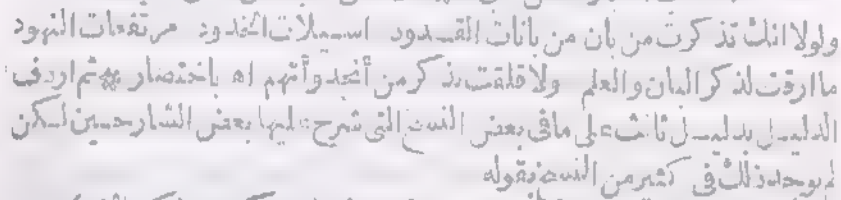 ولولا انك تذكرت من بان من بانات القدود اسيلات الخدود مرتفعات النهود
ما ارقت لذكر البان والعلم ولا قلقت بذكر من أنجد وأتهم اه باختصار * ثم اردف
الدليل بدليل ثالث على ما فى بعض النسخ التى شرح عليها بعض الشارحين لكن
لم يوجد ذلك فى كثير من النسخ بقوله